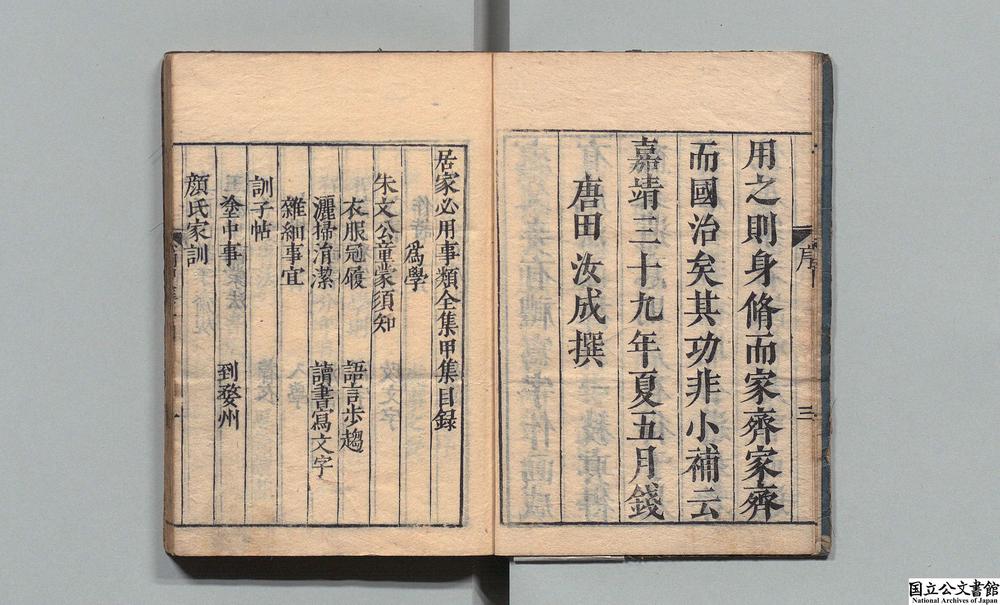 用之則身脩而家齊家齊
而國治矣其功非小補云
嘉靖三十九年夏五月錢
唐田汝成撰
序
三
居家必用事類全集甲集目録
爲學
朱文公童蒙須知
衣服冠履
語言步趨
灑掃涓潔
讀書寫文字
雜細事宜
訓子帖
塗中事
到婺州
顔氏家訓
国立公文書館
National Archives of Japan